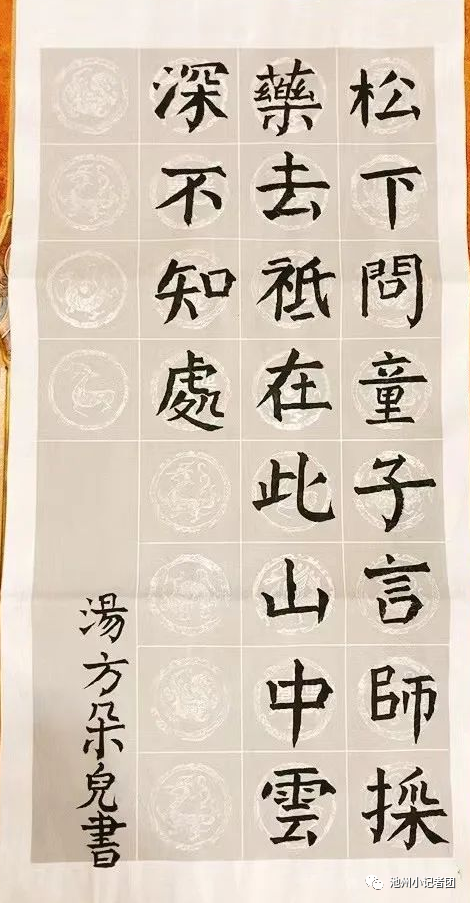 松下問童子言師採
藥去祗在此山中雲
深不知處
湯方朵兒書
池州小记者团